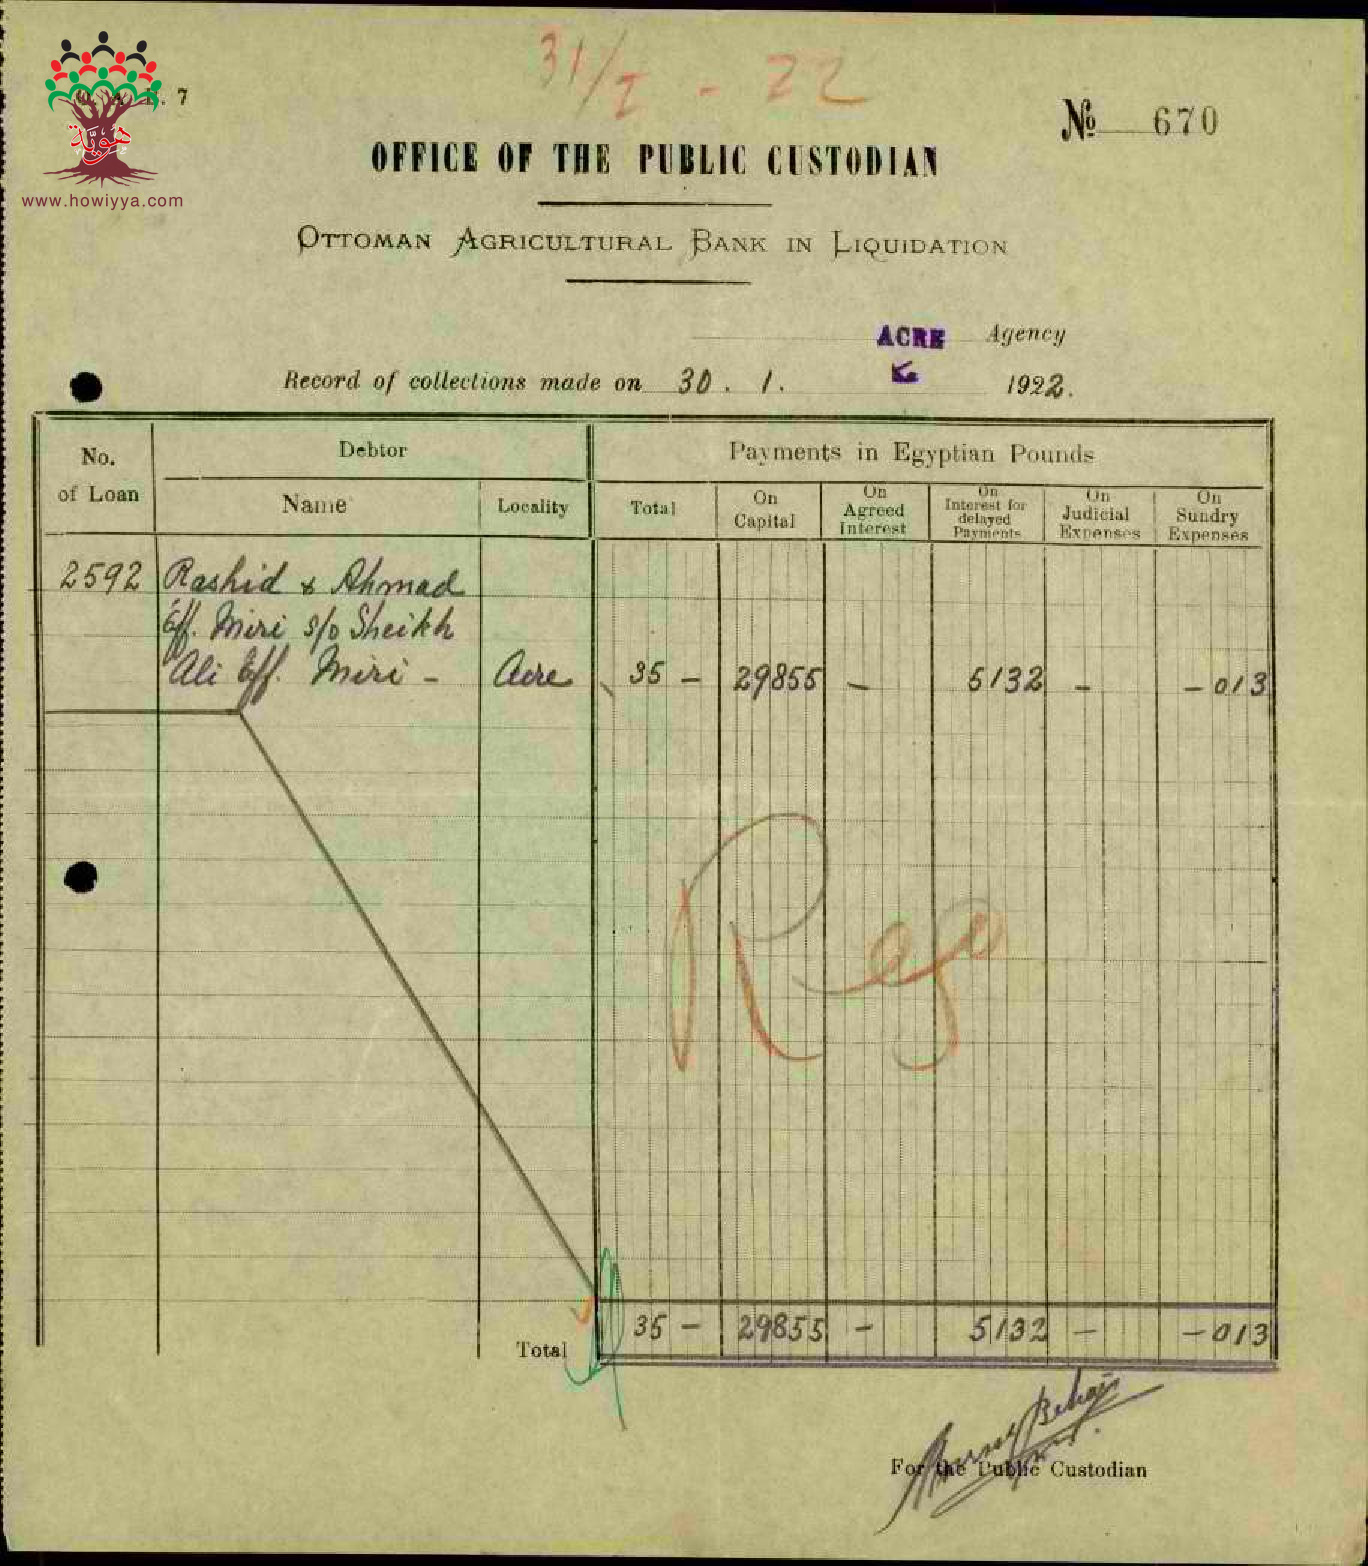 31/I - 22
هوية
www.howiyya.com
7
№ 670
OFFICE OF THE PUBLIC CUSTODIAN
OTTOMAN AGRICULTURAL BANK IN LIQUIDATION
ACRE Agency
Record of collections made on 30 . 1. 1922.
No. of Loan
Debtor
Name
Locality
Payments in Egyptian Pounds
Total
On Capital
On Agreed Interest
On Interest for delayed Payments
On Judicial Expenses
On Sundry Expenses
2592 Rashid & Ahmad
Eff. Miri s/o Sheikh
Ali Eff. Miri - Acre 35 - 29855 - 5132 - - 013
Reg
Total 35 - 29855 - 5132 - - 013
For the Public Custodian